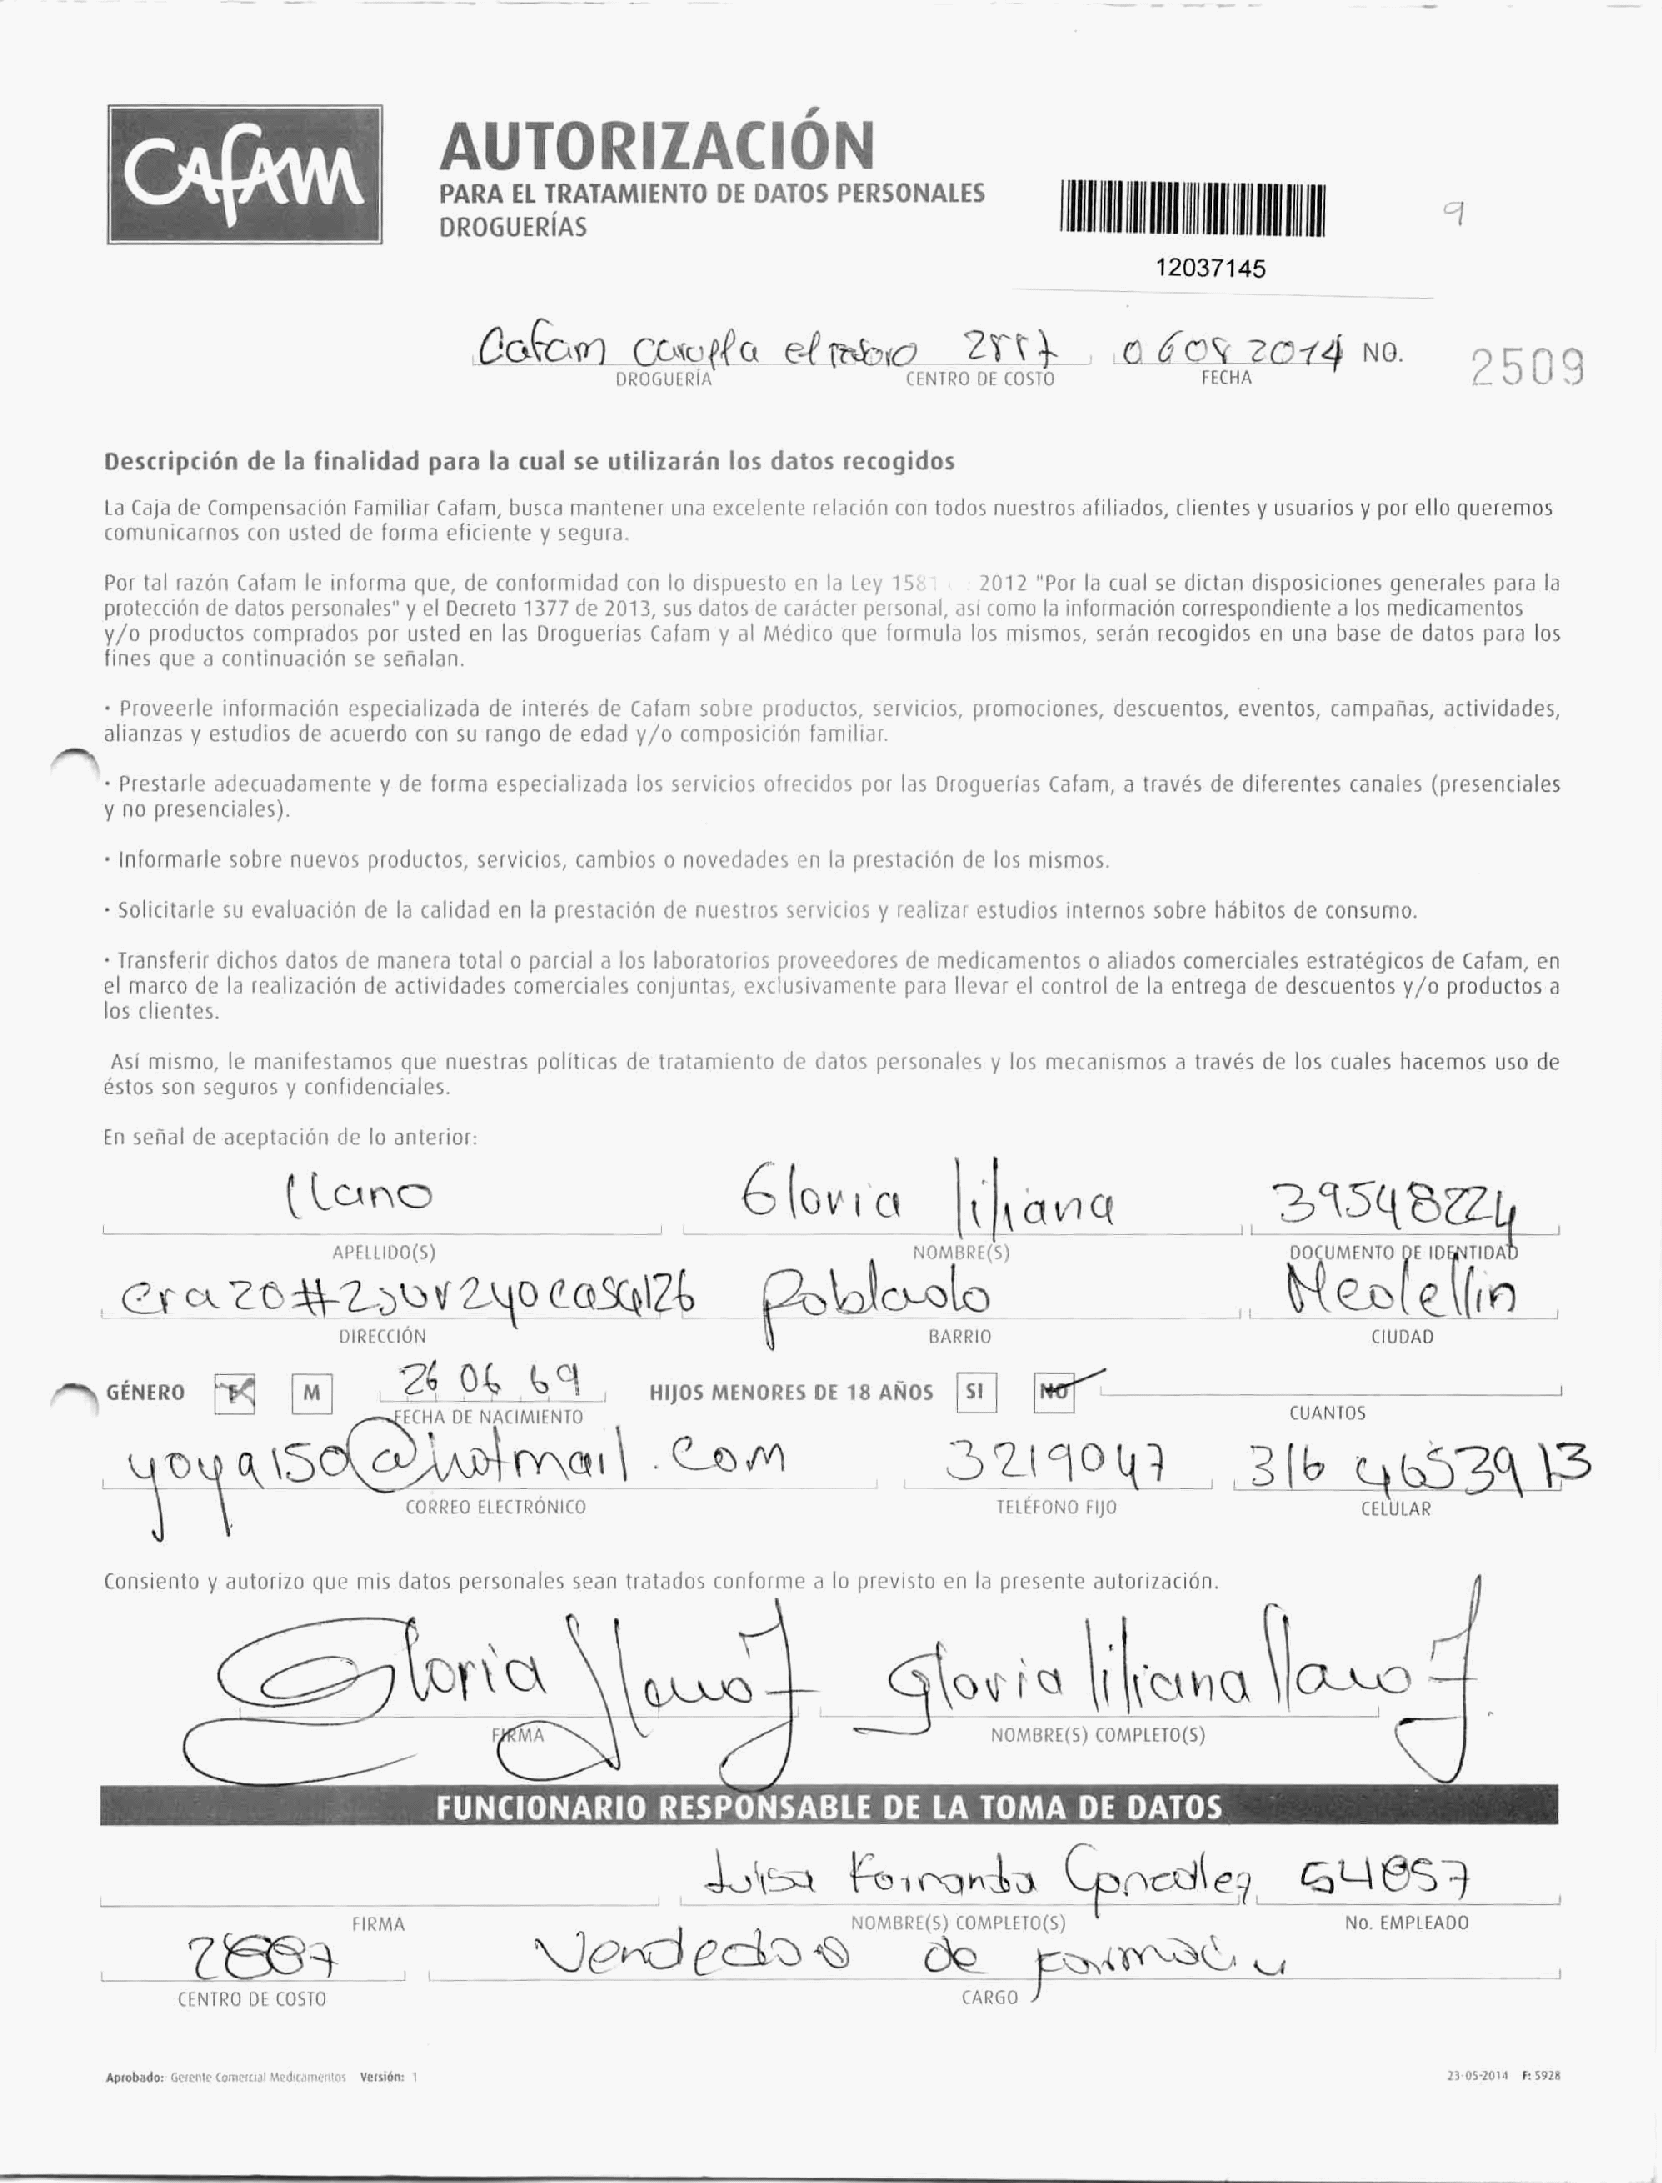 Cafam
AUTORIZACIÓN
PARA EL TRATAMIENTO DE DATOS PERSONALES
DROGUERÍAS
9
12037145
Cafam carulla el 2887 06082014 NO. 2509
DROGUERÍA CENTRO DE COSTO FECHA
Descripción de la finalidad para la cual se utilizarán los datos recogidos
La Caja de Compensación Familiar Cafam, busca mantener una excelente relación con todos nuestros afiliados, clientes y usuarios y por ello queremos
comunicarnos con usted de forma eficiente y segura.
Por tal razón Cafam le informa que, de conformidad con lo dispuesto en la Ley 1581 2012 "Por la cual se dictan disposiciones generales para la
protección de datos personales" y el Decreto 1377 de 2013, sus datos de carácter personal, así como la información correspondiente a los medicamentos
y/o productos comprados por usted en las Droguerías Cafam y al Médico que formula los mismos, serán recogidos en una base de datos para los
fines que a continuación se señalan.
· Proveerle información especializada de interés de Cafam sobre productos, servicios, promociones, descuentos, eventos, campañas, actividades,
alianzas y estudios de acuerdo con su rango de edad y/o composición familiar.
· Prestarle adecuadamente y de forma especializada los servicios ofrecidos por las Droguerías Cafam, a través de diferentes canales (presenciales
y no presenciales).
· Informarle sobre nuevos productos, servicios, cambios o novedades en la prestación de los mismos.
· Solicitarle su evaluación de la calidad en la prestación de nuestros servicios y realizar estudios internos sobre hábitos de consumo.
· Transferir dichos datos de manera total o parcial a los laboratorios proveedores de medicamentos o aliados comerciales estratégicos de Cafam, en
el marco de la realización de actividades comerciales conjuntas, exclusivamente para llevar el control de la entrega de descuentos y/o productos a
los clientes.
Así mismo, le manifestamos que nuestras políticas de tratamiento de datos personales y los mecanismos a través de los cuales hacemos uso de
éstos son seguros y confidenciales.
En señal de aceptación de lo anterior:
llano Gloria liliana 39548224
APELLIDO(S) NOMBRE(S) DOCUMENTO DE IDENTIDAD
cra20#2sur240casa126 Poblado Medellin
DIRECCIÓN BARRIO CIUDAD
GÉNERO F M 26 06 69 HIJOS MENORES DE 18 AÑOS SI NO
FECHA DE NACIMIENTO CUANTOS
yoya150@hotmail.com 3219047 316 4653913
CORREO ELECTRÓNICO TELÉFONO FIJO CELULAR
Consiento y autorizo que mis datos personales sean tratados conforme a lo previsto en la presente autorización.
Gloria Llano J Gloria liliana llano J.
FIRMA NOMBRE(S) COMPLETO(S)
FUNCIONARIO RESPONSABLE DE LA TOMA DE DATOS
Luisa Fernanda Gonzalez 54857
FIRMA NOMBRE(S) COMPLETO(S) No. EMPLEADO
2887 Vendedor de Farmacia
CENTRO DE COSTO CARGO
Aprobado: Gerente Comercial Medicamentos Versión: 1 23-05-2014 F: 5928